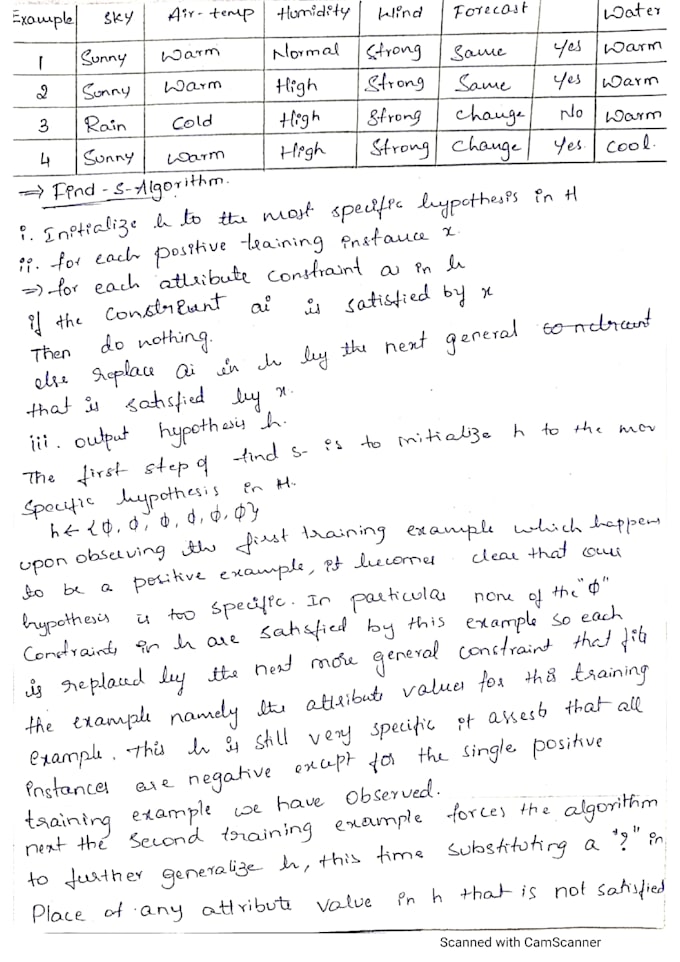 Example Sky Air-temp Humidity Wind Forecast Water
1 Sunny Warm Normal Strong Same Yes Warm
2 Sunny Warm High Strong Same Yes Warm
3 Rain Cold High Strong Change No Warm
4 Sunny Warm High Strong Change Yes. Cool.
⇒ Find-S-Algorithm.
i. Initialize h to the most specific hypothesis in H
ii. for each positive training instance x.
⇒ for each attribute constraint a in h
if the constraint ai is satisfied by x
Then do nothing.
else replace ai in h by the next general constraint
that is satisfied by x.
iii. output hypothesis h.
The first step of find s- is to initialize h to the mov
Specific hypothesis in H.
h ← {φ, φ, φ, φ, φ, φ}
upon observing the first training example which happens
to be a positive example, it becomes clear that our
hypothesis is too specific. In particular none of the "φ"
Constraints in h are satisfied by this example so each
is replaced by the next more general constraint that fits
the example namely the attribute values for this training
example. This h is still very specific it assesb that all
instances are negative except for the single positive
training example we have observed.
next the second training example forces the algorithm
to further generalize h, this time substituting a "?" in
Place of any attribute value in h that is not satisfied
Scanned with CamScanner